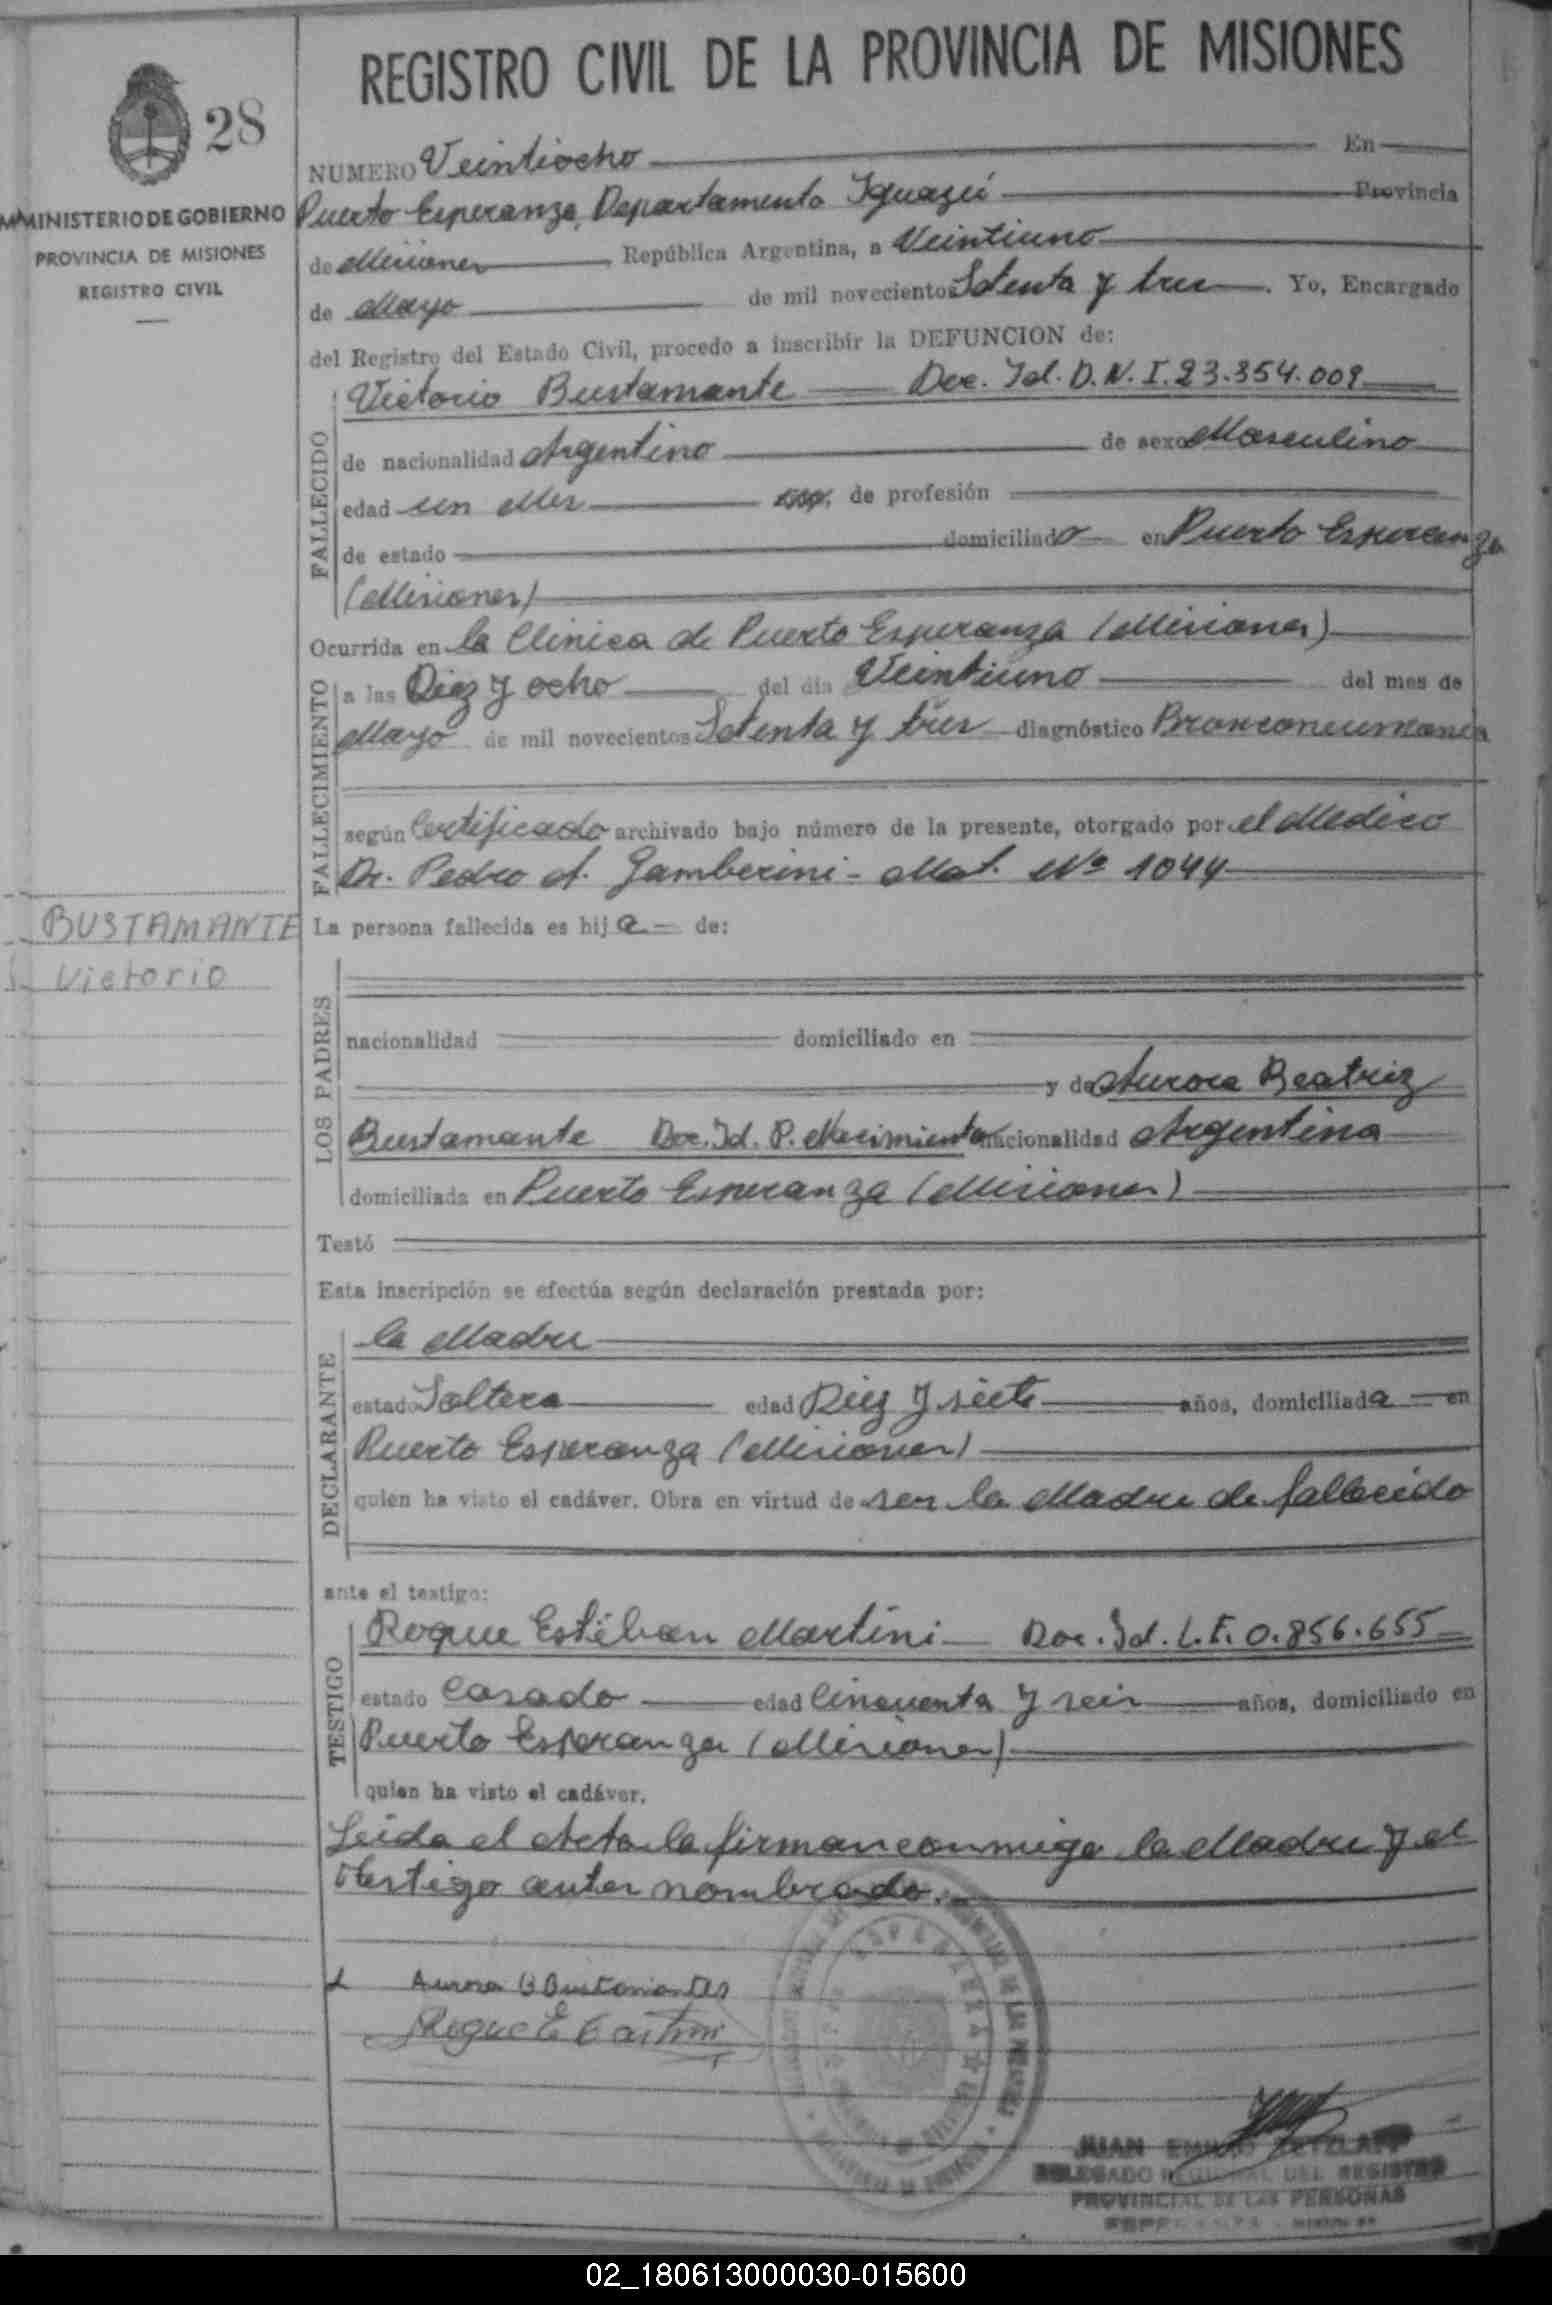 REGISTRO CIVIL DE LA PROVINCIA DE MISIONES
28
MINISTERIO DE GOBIERNO
PROVINCIA DE MISIONES
REGISTRO CIVIL
NUMERO Veintiocho En
Puerto Esperanza, Departamento Iguazú Provincia
de Misiones República Argentina, a Veintiuno
de Mayo de mil novecientos Setenta y tres. Yo, Encargado
del Registro del Estado Civil, procedo a inscribir la DEFUNCION de:
FALLECIDO
Victorio Bustamante Doc. Id. D.N.I. 23.354.009
de nacionalidad Argentino de sexo Masculino
edad un Mes de profesión
de estado domiciliado en Puerto Esperanza
(Misiones)
Ocurrida en la Clinica de Puerto Esperanza (Misiones)
FALLECIMIENTO
a las Diez y ocho del día Veintiuno del mes de
Mayo de mil novecientos Setenta y tres diagnóstico
según Certificado archivado bajo número de la presente, otorgado por el Medico
Dr. Pedro A. Gamberini - Mat. Nº 1044
BUSTAMANTE
Victorio
La persona fallecida es hija de:
LOS PADRES
nacionalidad domiciliado en
y de Aurora Beatriz
Bustamante Doc. Id. P. Nacimiento nacionalidad Argentina
domiciliada en Puerto Esperanza (Misiones)
Testó
Esta inscripción se efectúa según declaración prestada por:
DECLARANTE
la Madre
estado Soltera edad Diez y siete años, domiciliada en
Puerto Esperanza (Misiones)
quien ha visto el cadáver. Obra en virtud de ser la Madre de fallecido
ante el testigo:
TESTIGO
Roque Estéban Martini Doc. Id. L.E. 0.856.655
estado Casado edad Cincuenta y seis años, domiciliado en
Puerto Esperanza (Misiones)
quien ha visto el cadáver.
Leida el Acta la firman conmigo la Madre y el
testigo antes nombrado.
Aurora B Bustamante
JUAN EMILIO
DELEGADO REGIONAL DEL REGISTRO
PROVINCIAL DE LAS PERSONAS
02_180613000030-015600